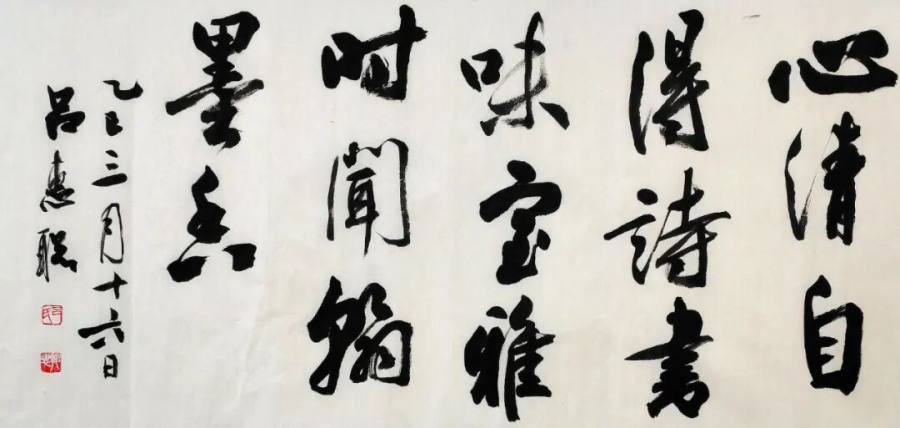 心清自
得詩書
味室雅
时聞翰
墨香
乙巳三月十六日
吕惠聪